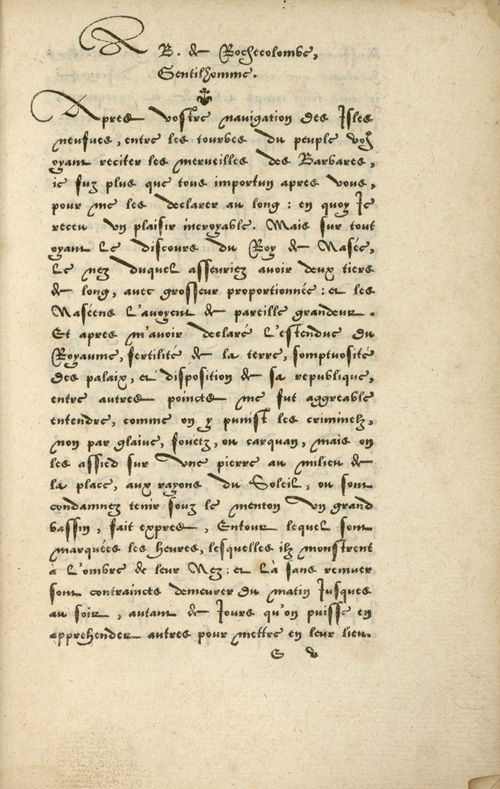 A B. de Rochecolombe,
Gentilhomme.
Apres vostre navigation des Isles
neufves, entre les tourbes du peuple vo9
oyant reciter les merveilles des Barbares,
ie fuz plus que tous importun apres vous,
pour me les declarer au long : en quoy Ie
receu un plaisir incroyable. Mais sur tout
oyant Le discours du Roy de Nasée,
Le nez duquel asseuriez avoir deux tiers
de long, avec grosseur proportionnée : et les
Naséens L'avoyent de pareille grandeur .
Et apres m'avoir declaré L'estendue du
Royaume, fertilité de la terre, somptuosité
des palaix, et disposition de sa republique,
entre autres poincts me fut aggreable
entendre, comme on y punist les criminelz,
non par glaive, fouetz, ou carquan, mais on
les assied sur une pierre au milieu de
la place, aux rayons du Soleil, ou sont
condamnez tenir souz le menton un grand
bassin, fait expres, Entour lequel sont
marquées les heures, lesquelles ilz monstrent
à L'ombre de leur Nez : et Là sans remuer
sont contraincts demeurer du matin Jusques
au soir, autant de Jours qu'on puisse en
apprehender autres pour mettre en leur lieu.
G v